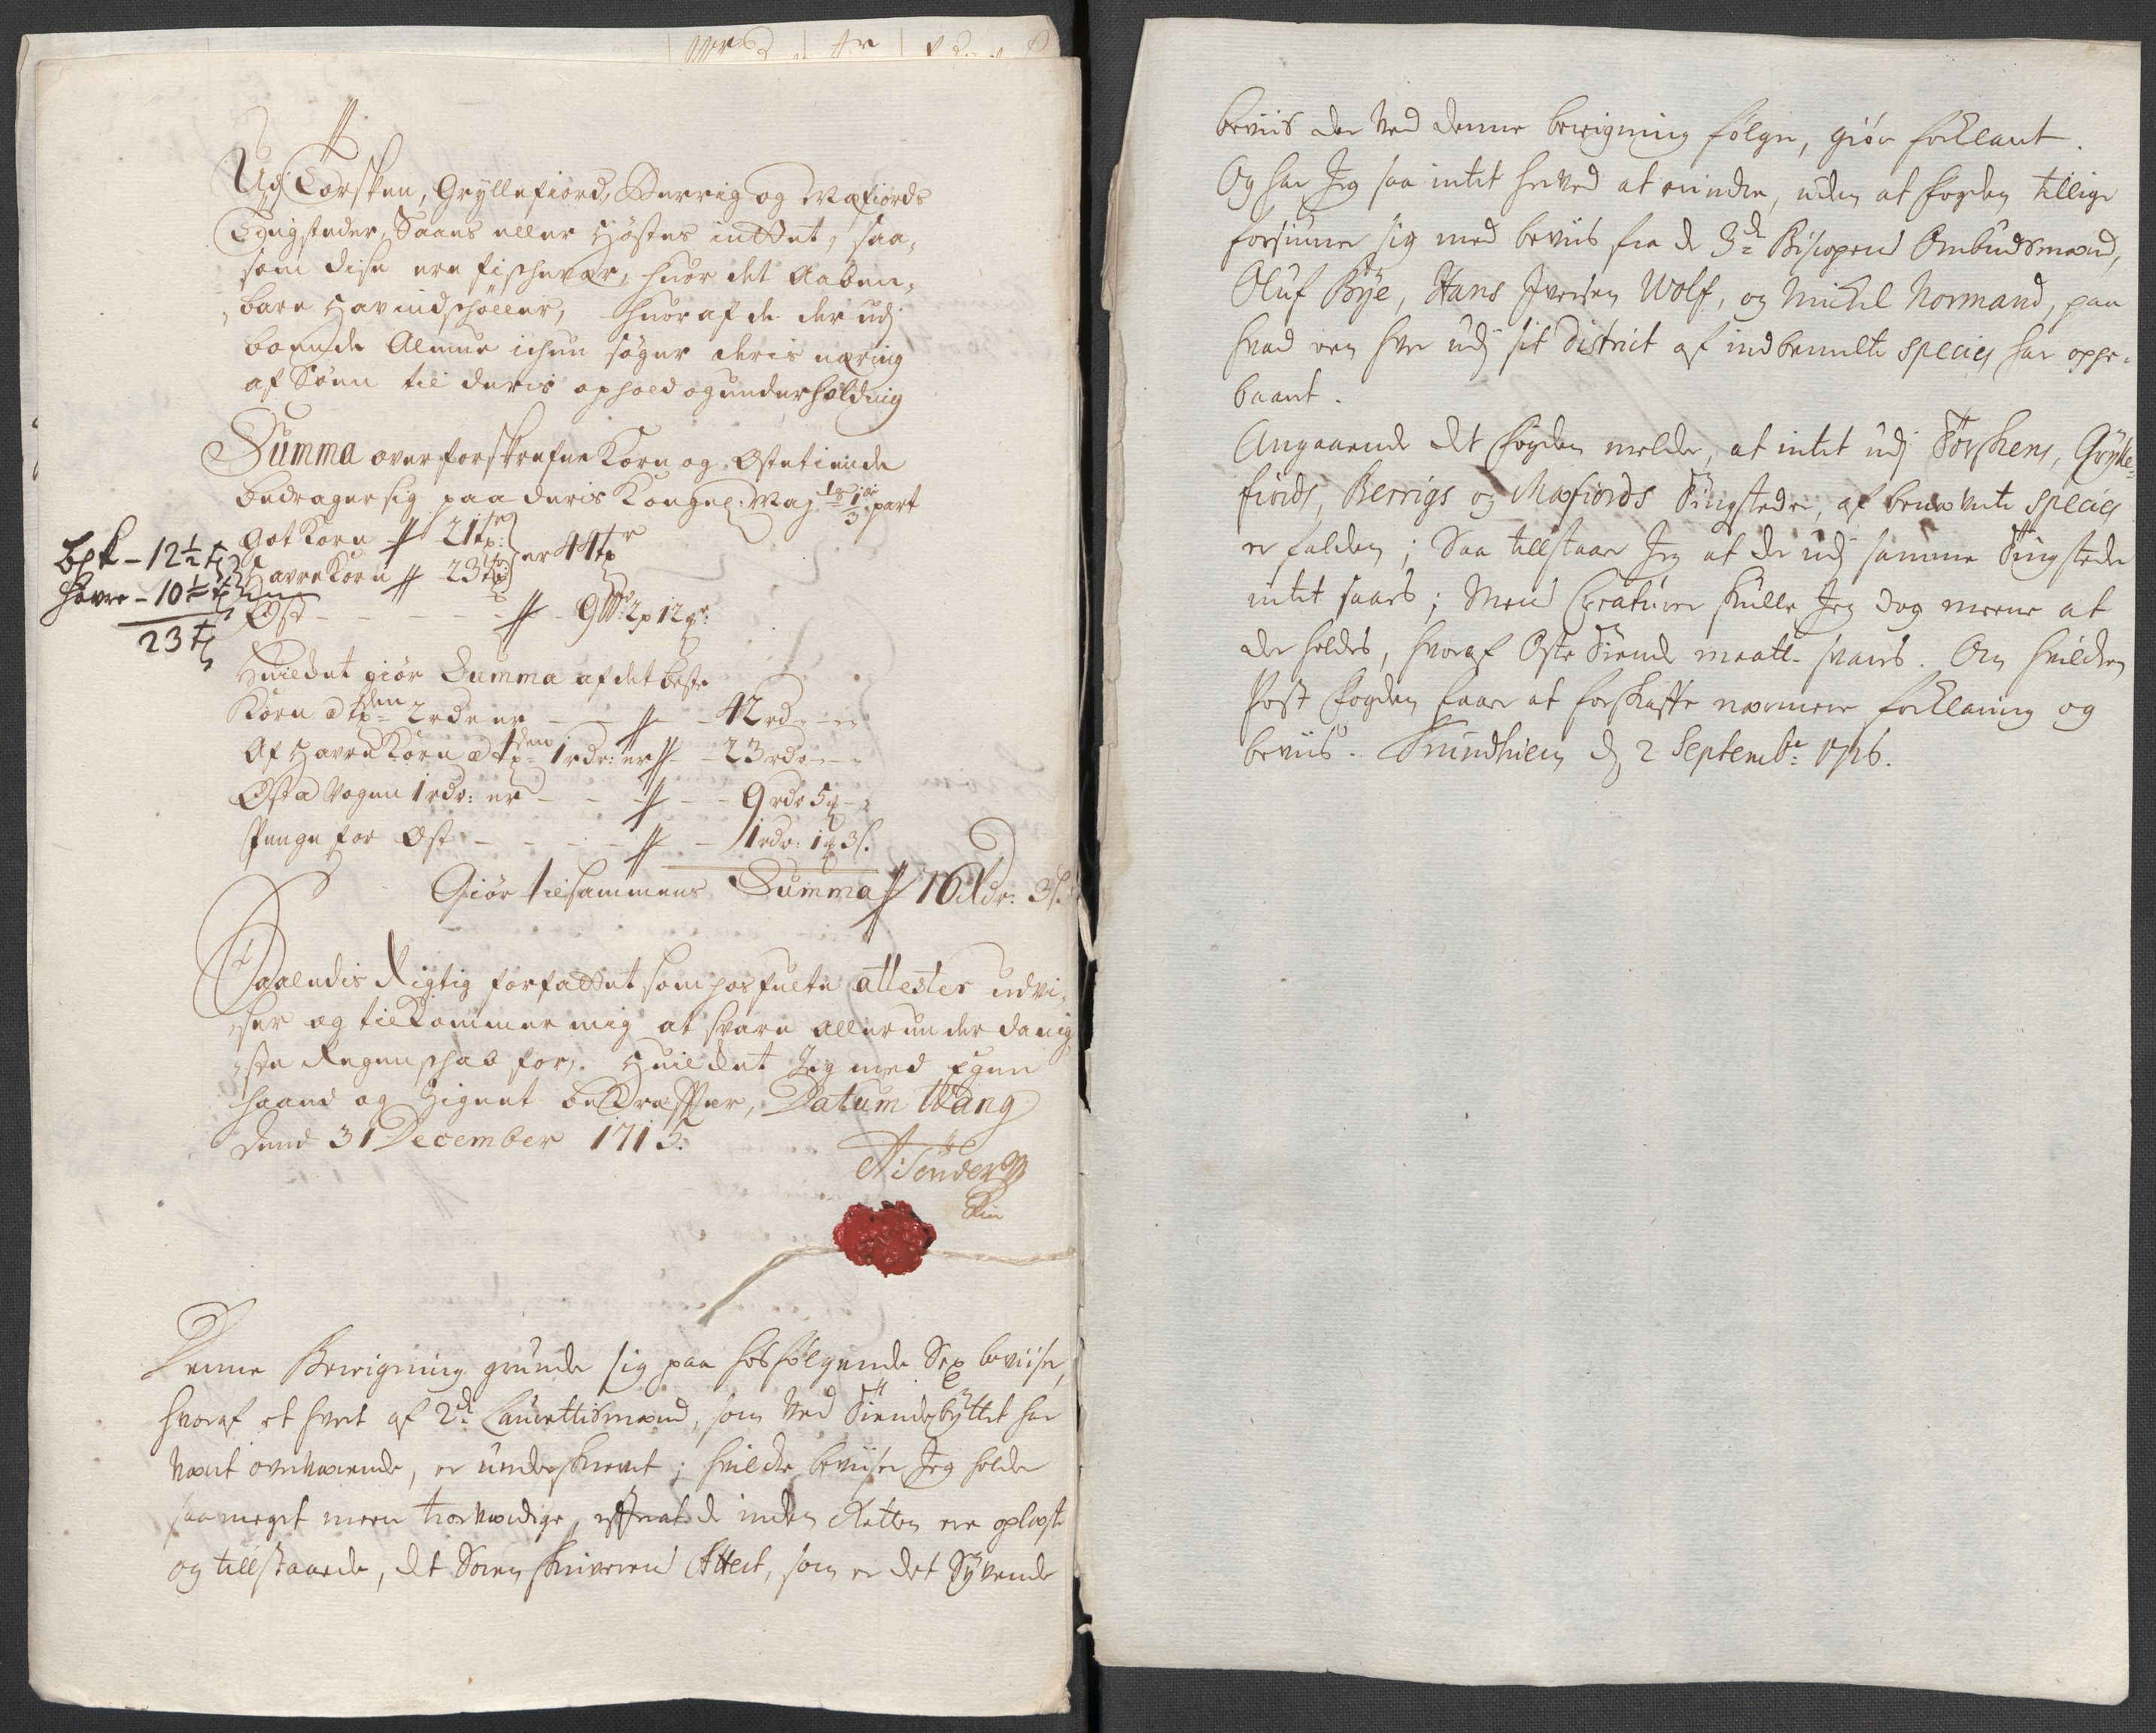 //
Udj Torsken, Gryllefiord, Berrig og Mæfiords
Tingsteder, Saaes eller Høstes inttet, saa,
som disse ere fischevær, huor det Aaben,
,bare Hav indschøller, huor af de der udj
boende Almue ichun søger deris næring
af Søen til deris ophold og underholdnig
Summa over forskrefne Korn og Ostetiende
bedrager sig paa deris Kongel: May: ts 1/3 part
Got Korn // 21 tr:
HavreKorn // 23 tr: er 44 tr
Ost - - - - - // - 9 W: 2 p 12 :
Bpk - 12½ t
Havre - 10½ t
23 t
Huilcket giør Summa af det beste
Korn a tr den 2 rdr er - - // - 42 rd - - -
Af HavreKorn a t den 1 rdr: er // - 23 rdr - - -
Ost a Vogen 1 rdr: er - - - // - - 9 rdr 5 - -
Penge for Ost - - - - // - 1 rdr: 1 3 s.
Giør tilsammens Summa // 76 Rdr: 3 s.
Saaledis Rigtig forfattet som hosfuelte attester udvi,
,ser og tilkommer mig at svare allerunderdanig,
,ste Regenschab for,. Huilcket Jeg med Egen
haand og Zignet becræffter, Datum Wang
dend 31 December 1715:
A: Tønder
Denne Berigning grunder sig paa hosfølgende Sex beviiser,
hvoraf et hvert af 2de Laurettismænd, som ved Tiendebyttet har
været overværende, er underskrevet; hvilcke beviiser Jeg holder
saa meget meere troeværdige, efterat de inden Retten ere oplæste
og tillstaaede, det Sorenskriverens Attest, som er det Syvende
beviis der ved denne berigning følger, giør forklart.
Og har Jeg saa intet herved at erindre, uden at Fogden tillige
forsiuner sig med beviis fra de 3de Bispens Ombudsmænd,
Oluf Bye, Hans Iversen Wolf, og Michel Normand, paa
hvad een hver udj sit District af indbemelte Species har oppe-
baaret.
Angaaende det Fogden melder, at intet udj Torskens, Grylle-
fiords, Berrigs og Mæfiords Tingsteder, af benævnte Species
er falden; Saa tillstaar Jeg at der udj samme Tingsteder
intet saaes; Mens Creaturer skulle Jeg dog meene at
der holdes, hvoraf Oste Tiende maatte svares. Om hvilcken
Post Fogden faar at forskaffe nærmere forklaring og
beviis. Trundhiem d 2 Septembr: 1716.